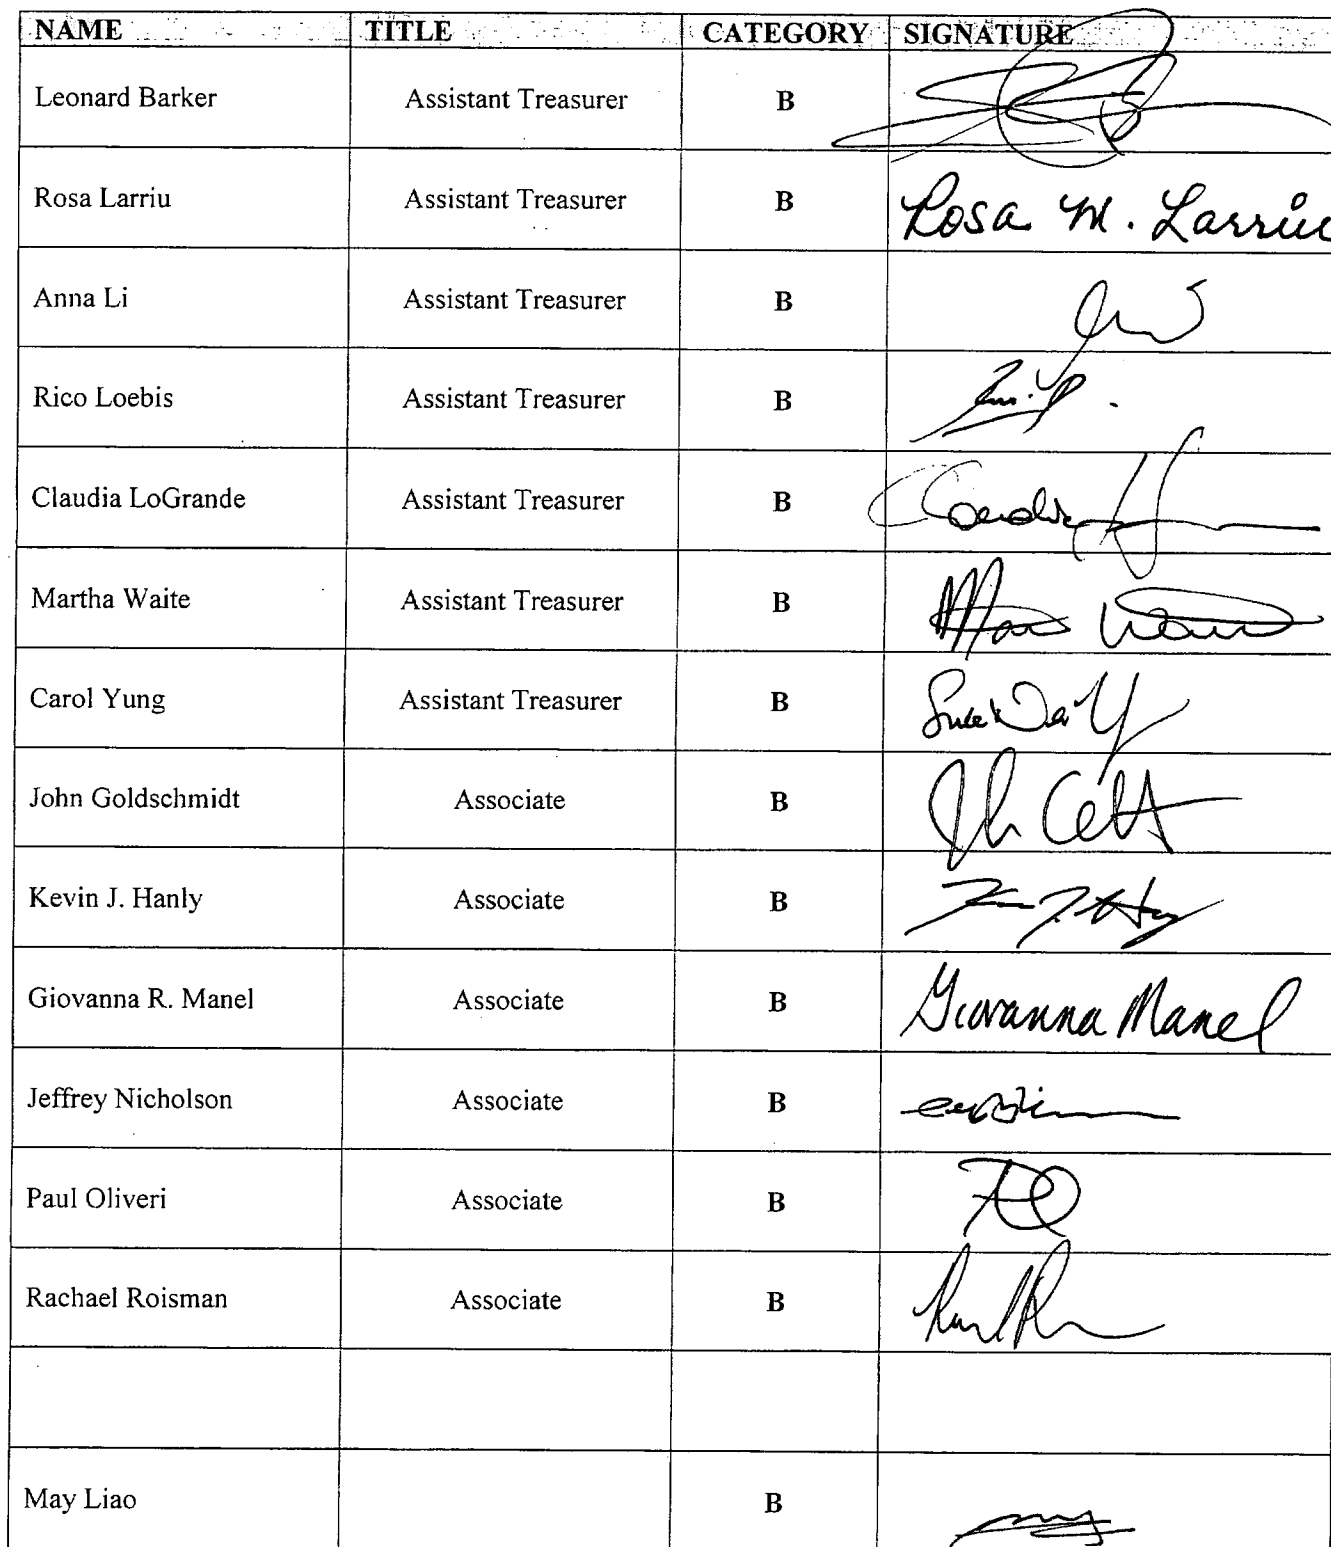 NAME TITLE CATEGORY SIGNATURE
Leonard Barker Assistant Treasurer B
Rosa Larriu Assistant Treasurer B Rosa M. Larriu
Anna Li Assistant Treasurer B
Rico Loebis Assistant Treasurer B
Claudia LoGrande Assistant Treasurer B
Martha Waite Assistant Treasurer B
Carol Yung Assistant Treasurer B
John Goldschmidt Associate B
Kevin J. Hanly Associate B
Giovanna R. Manel Associate B Giovanna Manel
Jeffrey Nicholson Associate B
Paul Oliveri Associate B
Rachael Roisman Associate B
May Liao B